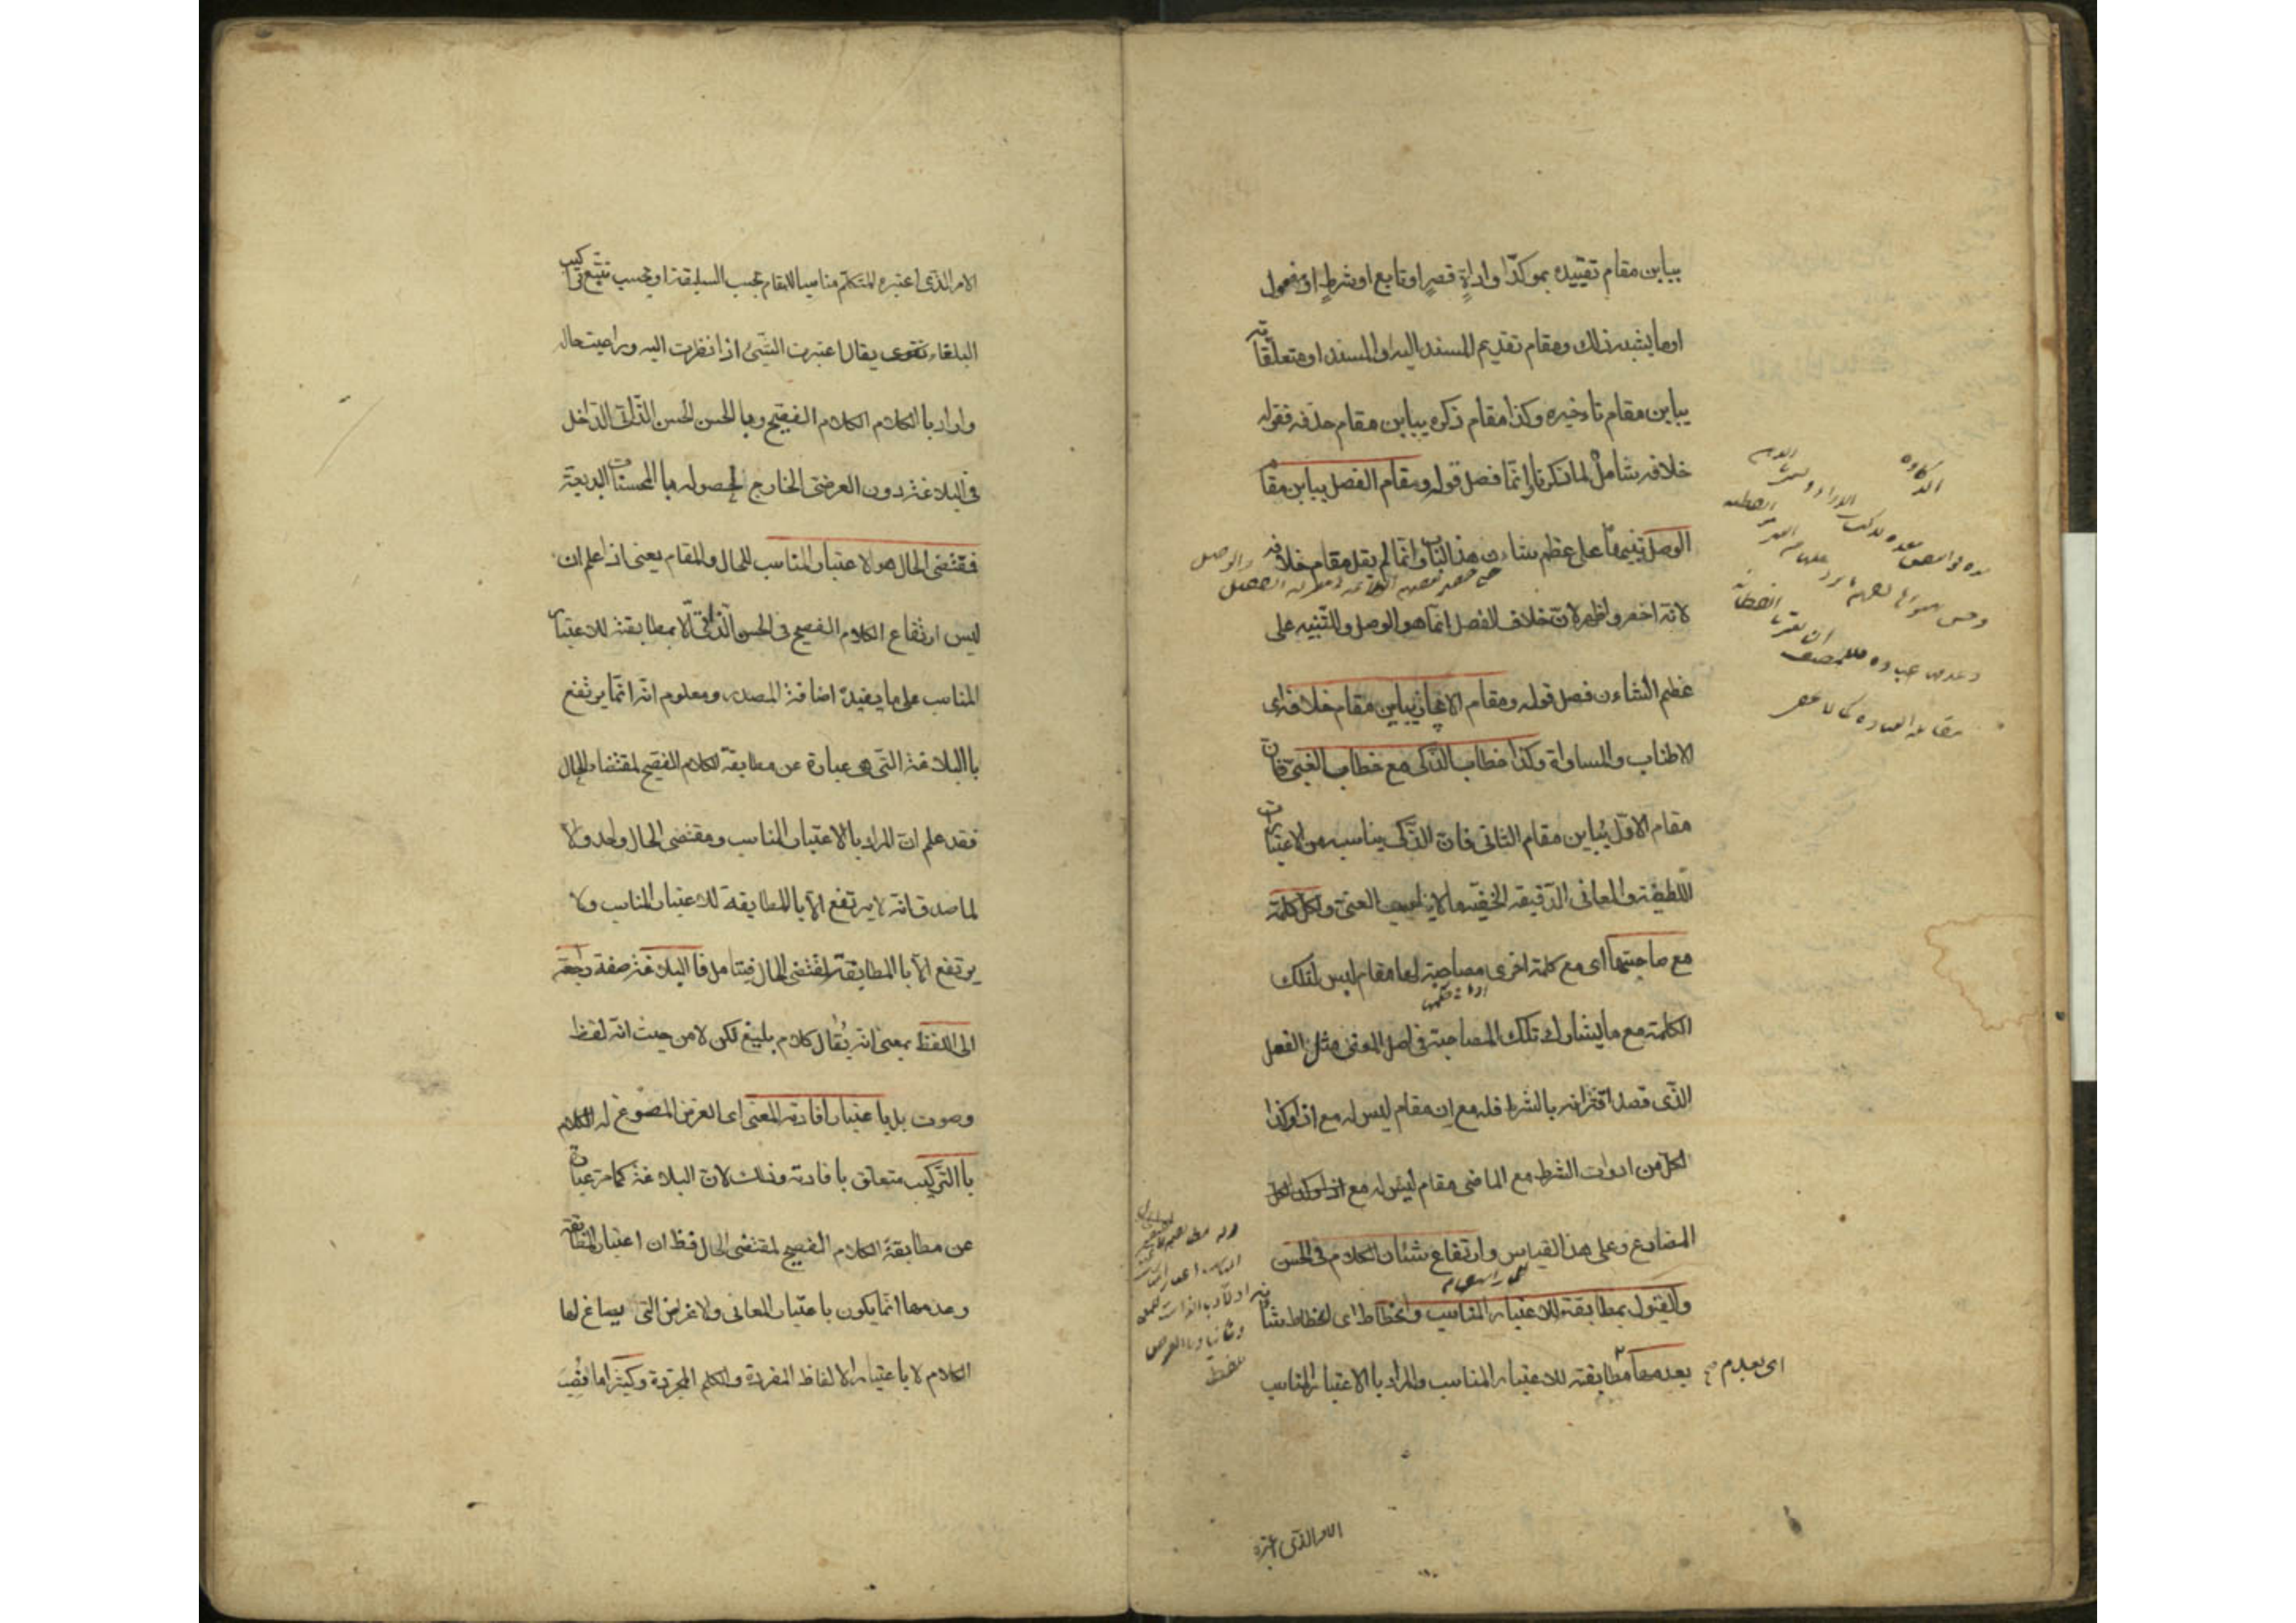 يباين مقام تقييده بموكد او اداة قصر او تابع او شرط او مفعول
او ما يشبه ذلك ومقام تقديم المسند اليه او المسند او متعلقاته
يباين مقام تاخيره وكذا مقام ذكره يباين مقام حذفه فقوله
خلافه شامل لما ذكرنا وانما فصل قوله ومقام الفصل يباين مقام
الوصل تنبيها على عظم شاءن هذا الباب وانما لم يقل مقام خلافه
لانه اخصر واظهر لان خلاف الفصل انما هو الوصل وللتنبيه على
عظم الشاءن فصل قوله ومقام الايجاز يباين مقام خلافه اى
الاطناب والمساواة وكذا خطاب الذكى مع خطاب الغبى فان
مقام الاول يباين مقام الثانى فان الذكى يناسبه من الاعتبارات
اللطيفة والمعانى الدقيقة الخفية ما لا يناسب الغبى ولكل كلمة
مع صاحبتها اى مع كلمة اخرى مصاحبة لها مقام ليس لتلك
الكلمة مع ما يشارك تلك المصاحبة فى اصل المعنى مثل الفعل
الذى قصد اقترانه بالشرط فله مع ان مقام ليس له مع اذا وكذا
لكل من ادوات الشرط مع الماضى مقام ليس له مع
المضارع وعلى هذا القياس وارتفاع شئان الكلام فى الحسن
والقبول بمطابقته للاعتبار المناسب وانحطاطه اى انحطاط شانه
بعدمها اى بعدم مطابقته للاعتبار المناسب والمراد با الاعتبار المناسب
الامر الذى اعتبره
الامر الذى اعتبره المتكلم مناسبا للمقام بحسب السليقة او بحسب تتبع تراكيب
البلغاء يقال اعتبرت الشئ اذا نظرت اليه وراعيت حاله
واراد با الكلام الكلام الفصيح وبا الحسن الحسن الذاتى الداخل
فى البلاغة دون العرضى الخارج لحصوله با المحسنات البديعية
فمقتضى الحال هو الاعتبار المناسب للحال والمقام يعنى اذا علم ان
ليس ارتفاع الكلام الفصيح فى الحسن الذاتى الا بمطابقته للاعتبار
المناسب على ما يفيده اضافة المصدر ومعلوم انه انما يرتفع
با البلاغة التى هى عبارة عن مطابقة الكلام الفصيح لمقتضا الحال
فقد علم ان المراد با الاعتبار المناسب ومقتضى الحال واحد والا
لما صدق انه لا يرتفع الا با المطابقة للاعتبار المناسب ولا
يرتفع الا با المطابقة لمقتضى الحال فيتامل فا البلاغة صفة راجعة
الى اللفظ بمعنى انه يقال كلام بليغ لكن لا من حيث انه لفظ
وصوت بل با عتبار افادته المعنى اى الغرض المصوغ له الكلام
با التركيب متعلق با فادته وذلك لان البلاغة كما مر عبارة
عن مطابقة الكلام الفصيح لمقتضى الحال فظ ان اعتبار المطابقة
وعدمها انما يكون با عتبار المعانى والاغراض التى يصاغ لها
الكلام لا با عتبار الالفاظ المفردة والكلم المجردة وكثيرا ما